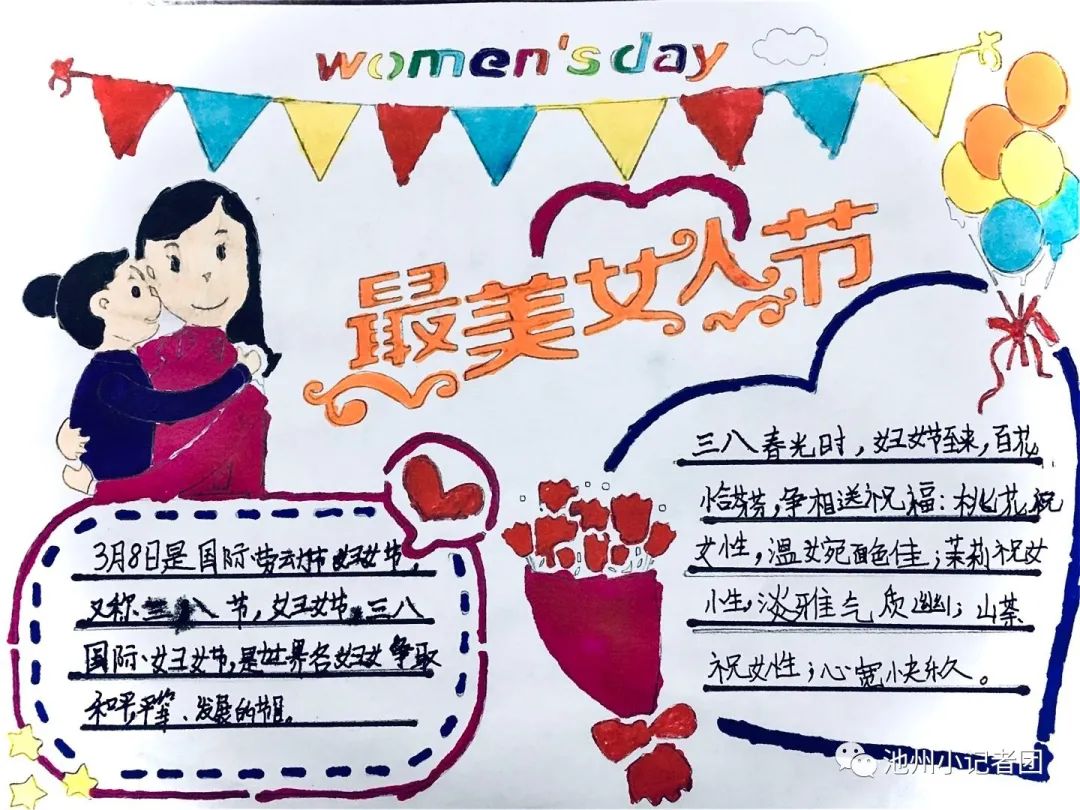 women's day
最美女人节
3月8日是国际劳动节妇女节,
又称三八节,妇女节,三八
国际妇女节,是世界各妇女争取
和平,平等、发展的节日。
三八春光时,妇女节至来,百花
恰芬芳,争相送祝福:桃花祝
女性,温婉面色佳;茉莉祝女
小性,淡雅气质幽;山茶
祝女性;心宽快乐久。
池州小记者团